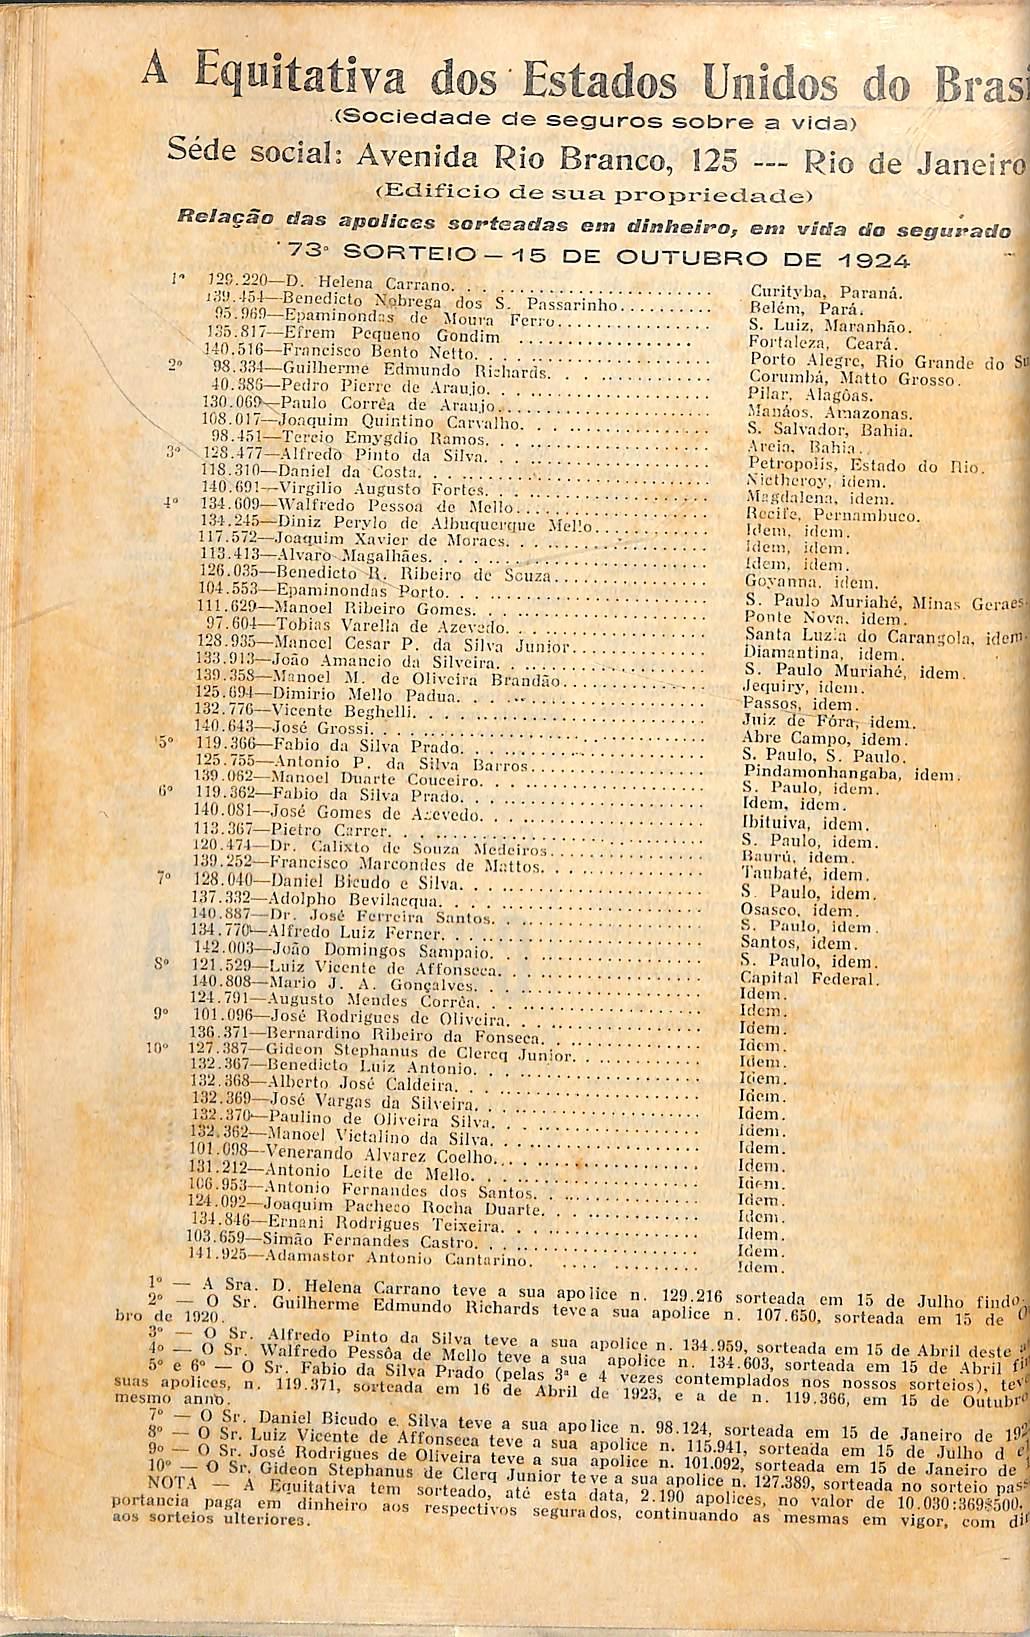 A Equitativa dos Estados Unidos do Brasi
(Sociedade de seguros sobre a vida)
Séde social: Avenida Rio Branco, 125 --- Rio de Janeiro
(Edificio de sua propriedade)
Relação das apolices sorteadas em dinheiro, em vida do segurado
73º SORTEIO — 15 DE OUTUBRO DE 1924
1º 129.220—D. Helena Carrano. Curityba, Paraná.
139.454—Benedicto Nobrega dos S. Passarinho. Belém, Pará.
95.969—Epaminondas de Moura Ferro. S. Luiz, Maranhão.
135.817—Efrem Pequeno Gondim Fortaleza, Ceará.
140.516—Francisco Bento Netto. Porto Alegre, Rio Grande do Su
2º 98.334—Guilherme Edmundo Richards. Corumbá, Matto Grosso.
40.386—Pedro Pierre de Araujo. Pilar, Alagôas.
130.069—Paulo Corrêa de Araujo. Manáos, Amazonas.
108.017—Joaquim Quintino Carvalho. S. Salvador, Bahia.
98.451—Tercio Emygdio Ramos. Areia, Bahia.
3º 128.477—Alfredo Pinto da Silva. Petropolis, Estado do Rio.
118.310—Daniel da Costa. Nictheroy, idem.
140.691—Virgilio Augusto Fortes. Magdalena, idem.
4º 134.609—Walfredo Pessoa de Mello. Recife, Pernambuco.
134.245—Diniz Perylo de Albuquerque Mello. Idem, idem.
117.572—Joaquim Xavier de Moraes. Idem, idem.
113.413—Alvaro Magalhães. Idem, idem.
126.035—Benedicto R. Ribeiro de Souza. Goyanna, idem.
104.553—Epaminondas Porto. S. Paulo Muriahé, Minas Geraes.
111.629—Manoel Ribeiro Gomes. Ponte Nova, idem.
97.604—Tobias Varella de Azevedo. Santa Luzia do Carangola, idem.
128.935—Manoel Cesar P. da Silva Junior. Diamantina, idem.
133.913—João Amancio da Silveira. S. Paulo Muriahé, idem.
139.358—Manoel M. de Oliveira Brandão. Jequiry, idem.
125.694—Dimirio Mello Padua. Passos, idem.
132.776—Vicente Beghelli. Juiz de Fóra, idem.
140.643—José Grossi. Abre Campo, idem.
5º 119.366—Fabio da Silva Prado. S. Paulo, S. Paulo.
125.755—Antonio P. da Silva Barros. Pindamonhangaba, idem.
139.062—Manoel Duarte Couceiro. S. Paulo, idem.
6º 119.362—Fabio da Silva Prado. Idem, idem.
140.081—José Gomes de Azevedo. Ibituiva, idem.
113.367—Pietro Carrer. S. Paulo, idem.
120.474—Dr. Calixto de Souza Medeiros. Baurú, idem.
139.252—Francisco Marcondes de Mattos. Taubaté, idem.
7º 128.040—Daniel Bicudo e Silva. S. Paulo, idem.
137.332—Adolpho Bevilacqua. Osasco, idem.
140.887—Dr. José Ferreira Santos. S. Paulo, idem.
134.770—Alfredo Luiz Ferner. Santos, idem.
142.003—João Domingos Sampaio. S. Paulo, idem.
8º 121.529—Luiz Vicente de Affonseca. Capital Federal.
140.808—Mario J. A. Gonçalves. Idem.
124.791—Augusto Mendes Corrêa. Idem.
9º 101.096—José Rodrigues de Oliveira. Idem.
136.371—Bernardino Ribeiro da Fonseca. Idem.
10º 127.387—Gideon Stephanus de Clercq Junior. Idem.
132.367—Benedicto Luiz Antonio. Idem.
132.368—Alberto José Caldeira. Idem.
132.369—José Vargas da Silveira. Idem.
132.370—Paulino de Oliveira Silva. Idem.
132.362—Manoel Victalino da Silva. Idem.
101.098—Venerando Alvarez Coelho. Idem.
131.212—Antonio Leite de Mello. Idem.
106.953—Antonio Fernandes dos Santos. Idem.
124.092—Joaquim Pacheco Rocha Duarte. Idem.
134.846—Ernani Rodrigues Teixeira. Idem.
103.659—Simão Fernandes Castro. Idem.
141.925—Adamastor Antonio Cantarino. Idem.
1º — A Sra. D. Helena Carrano teve a sua apolice n. 129.216 sorteada em 15 de Julho findo.
2º — O Sr. Guilherme Edmundo Richards teve a sua apolice n. 107.650, sorteada em 15 de O
bro de 1920.
3º — O Sr. Alfredo Pinto da Silva teve a sua apolice n. 134.959, sorteada em 15 de Abril deste a
4º — O Sr. Walfredo Pessôa de Mello teve a sua apolice n. 134.603, sorteada em 15 de Abril fi
5º e 6º — O Sr. Fabio da Silva Prado (pelas 3ª e 4 vezes contemplados nos nossos sorteios), teve
suas apolices, n. 119.371, sorteada em 16 de Abril de 1923, e a de n. 119.366, em 15 de Outubro
mesmo anno.
7º — O Sr. Daniel Bicudo e Silva teve a sua apolice n. 98.124, sorteada em 15 de Janeiro de 192
8º — O Sr. Luiz Vicente de Affonseca teve a sua apolice n. 115.941, sorteada em 15 de Julho d e
9º — O Sr. José Rodrigues de Oliveira teve a sua apolice n. 101.092, sorteada em 15 de Janeiro de
10º — O Sr. Gideon Stephanus de Clerq Junior teve a sua apolice n. 127.389, sorteada no sorteio pass
NOTA — A Equitativa tem sorteado, até esta data, 2.190 apolices, no valor de 10.030:369$500,
portancia paga em dinheiro aos respectivos segurados, continuando as mesmas em vigor, com dir
aos sorteios ulteriores.